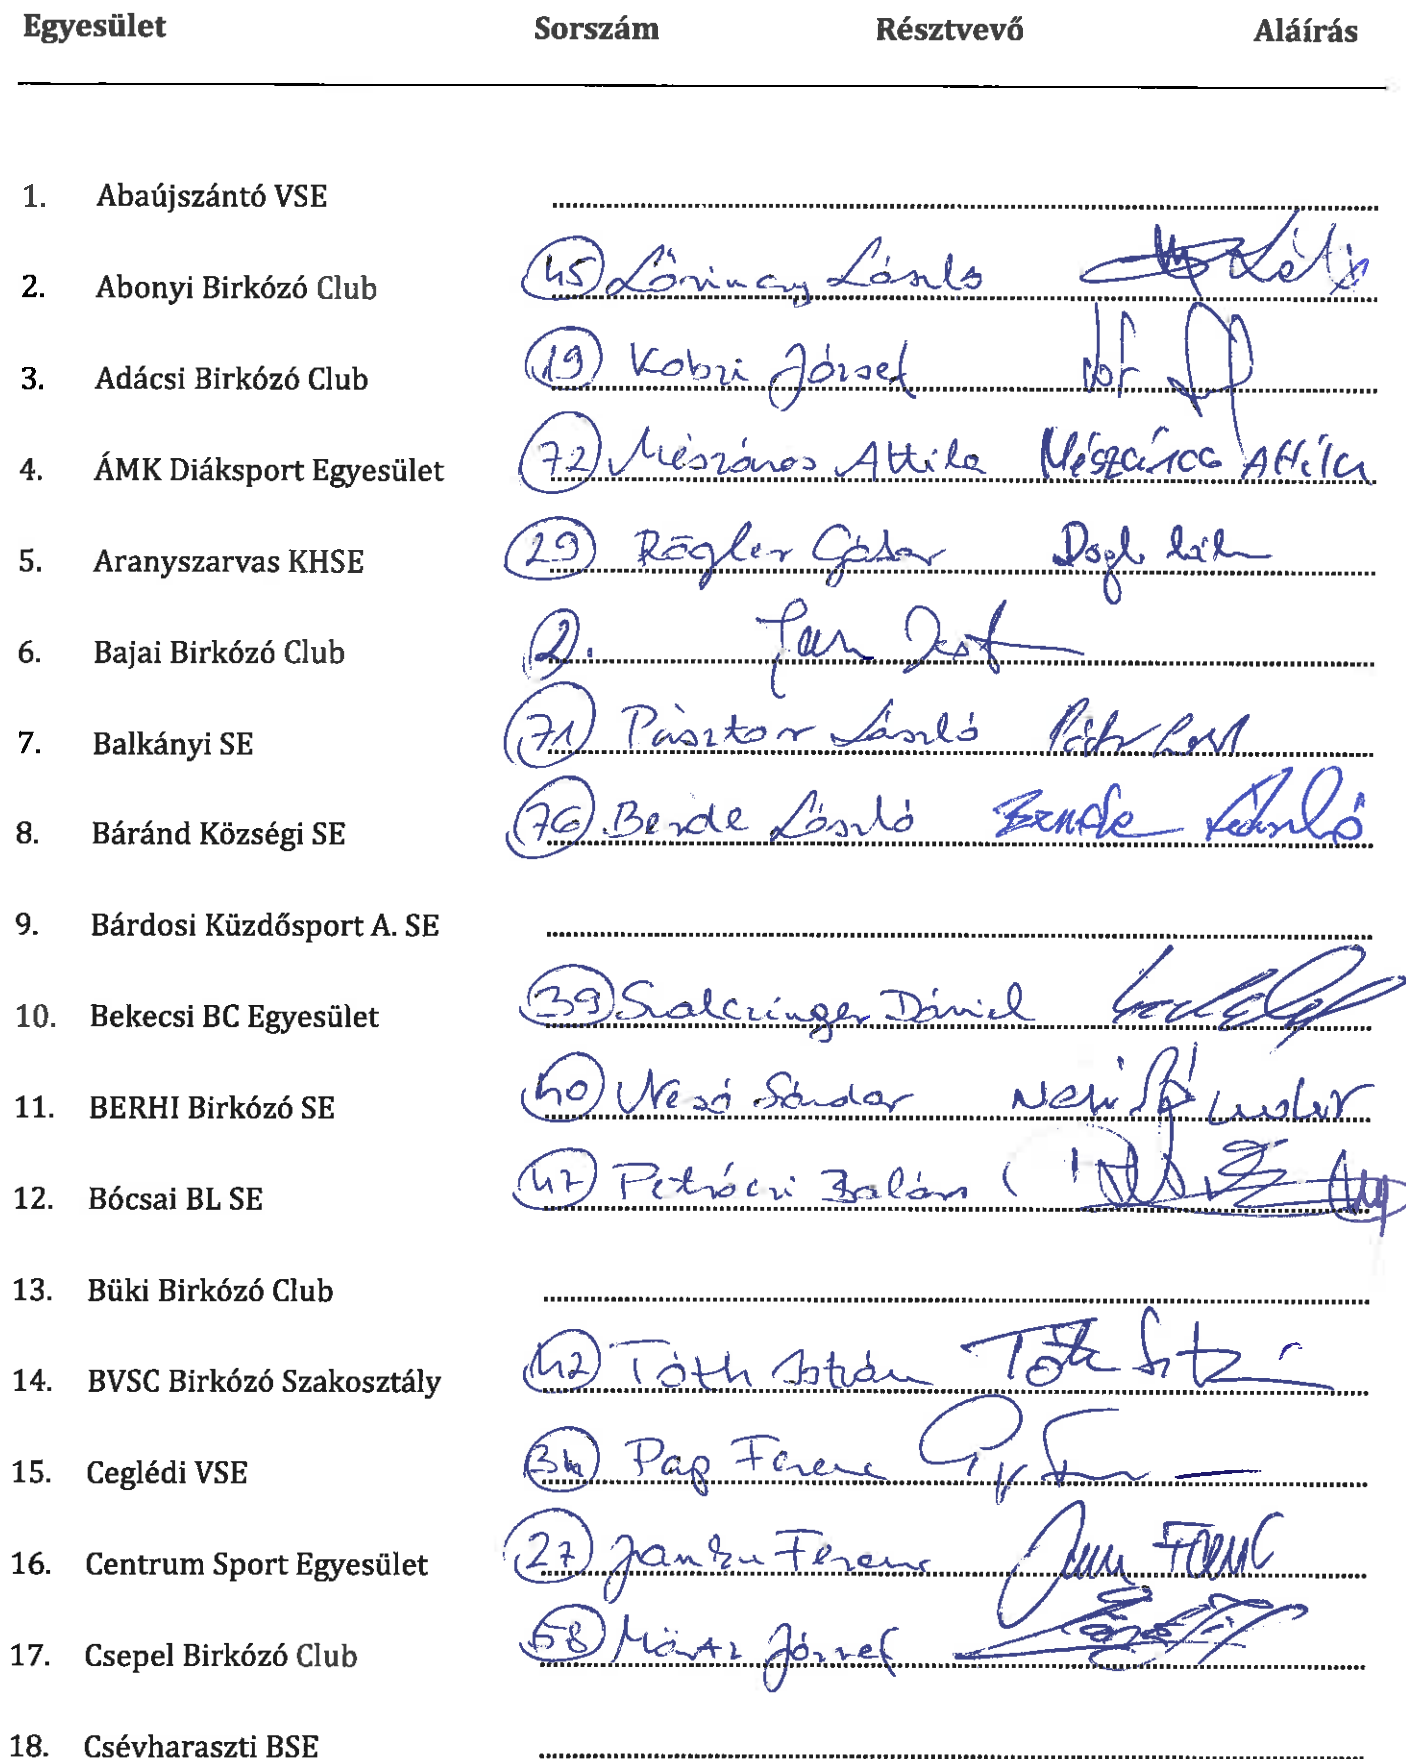 Egyesület Sorszám Résztvevő Aláírás
1. Abaújszántó VSE
2. Abonyi Birkózó Club 45 Lőrinczy László
3. Adácsi Birkózó Club 19 Kobzi József
4. ÁMK Diáksport Egyesület 72 Mészáros Attila Mészáros Attila
5. Aranyszarvas KHSE 29 Rőgler Gábor
6. Bajai Birkózó Club 2.
7. Balkányi SE 71 Pásztor László
8. Báránd Községi SE 76 Bende László Bende László
9. Bárdosi Küzdősport A. SE
10. Bekecsi BC Egyesület 39 Szalczinger Dániel
11. BERHI Birkózó SE 40 Sándor
12. Bócsai BL SE 47 Petróczi Balázs
13. Büki Birkózó Club
14. BVSC Birkózó Szakosztály 42 Tóth István Tóth
15. Ceglédi VSE 34 Pap Ferenc
16. Centrum Sport Egyesület 27 Ferenc Ferenc
17. Csepel Birkózó Club 68 József
18. Csévharaszti BSE